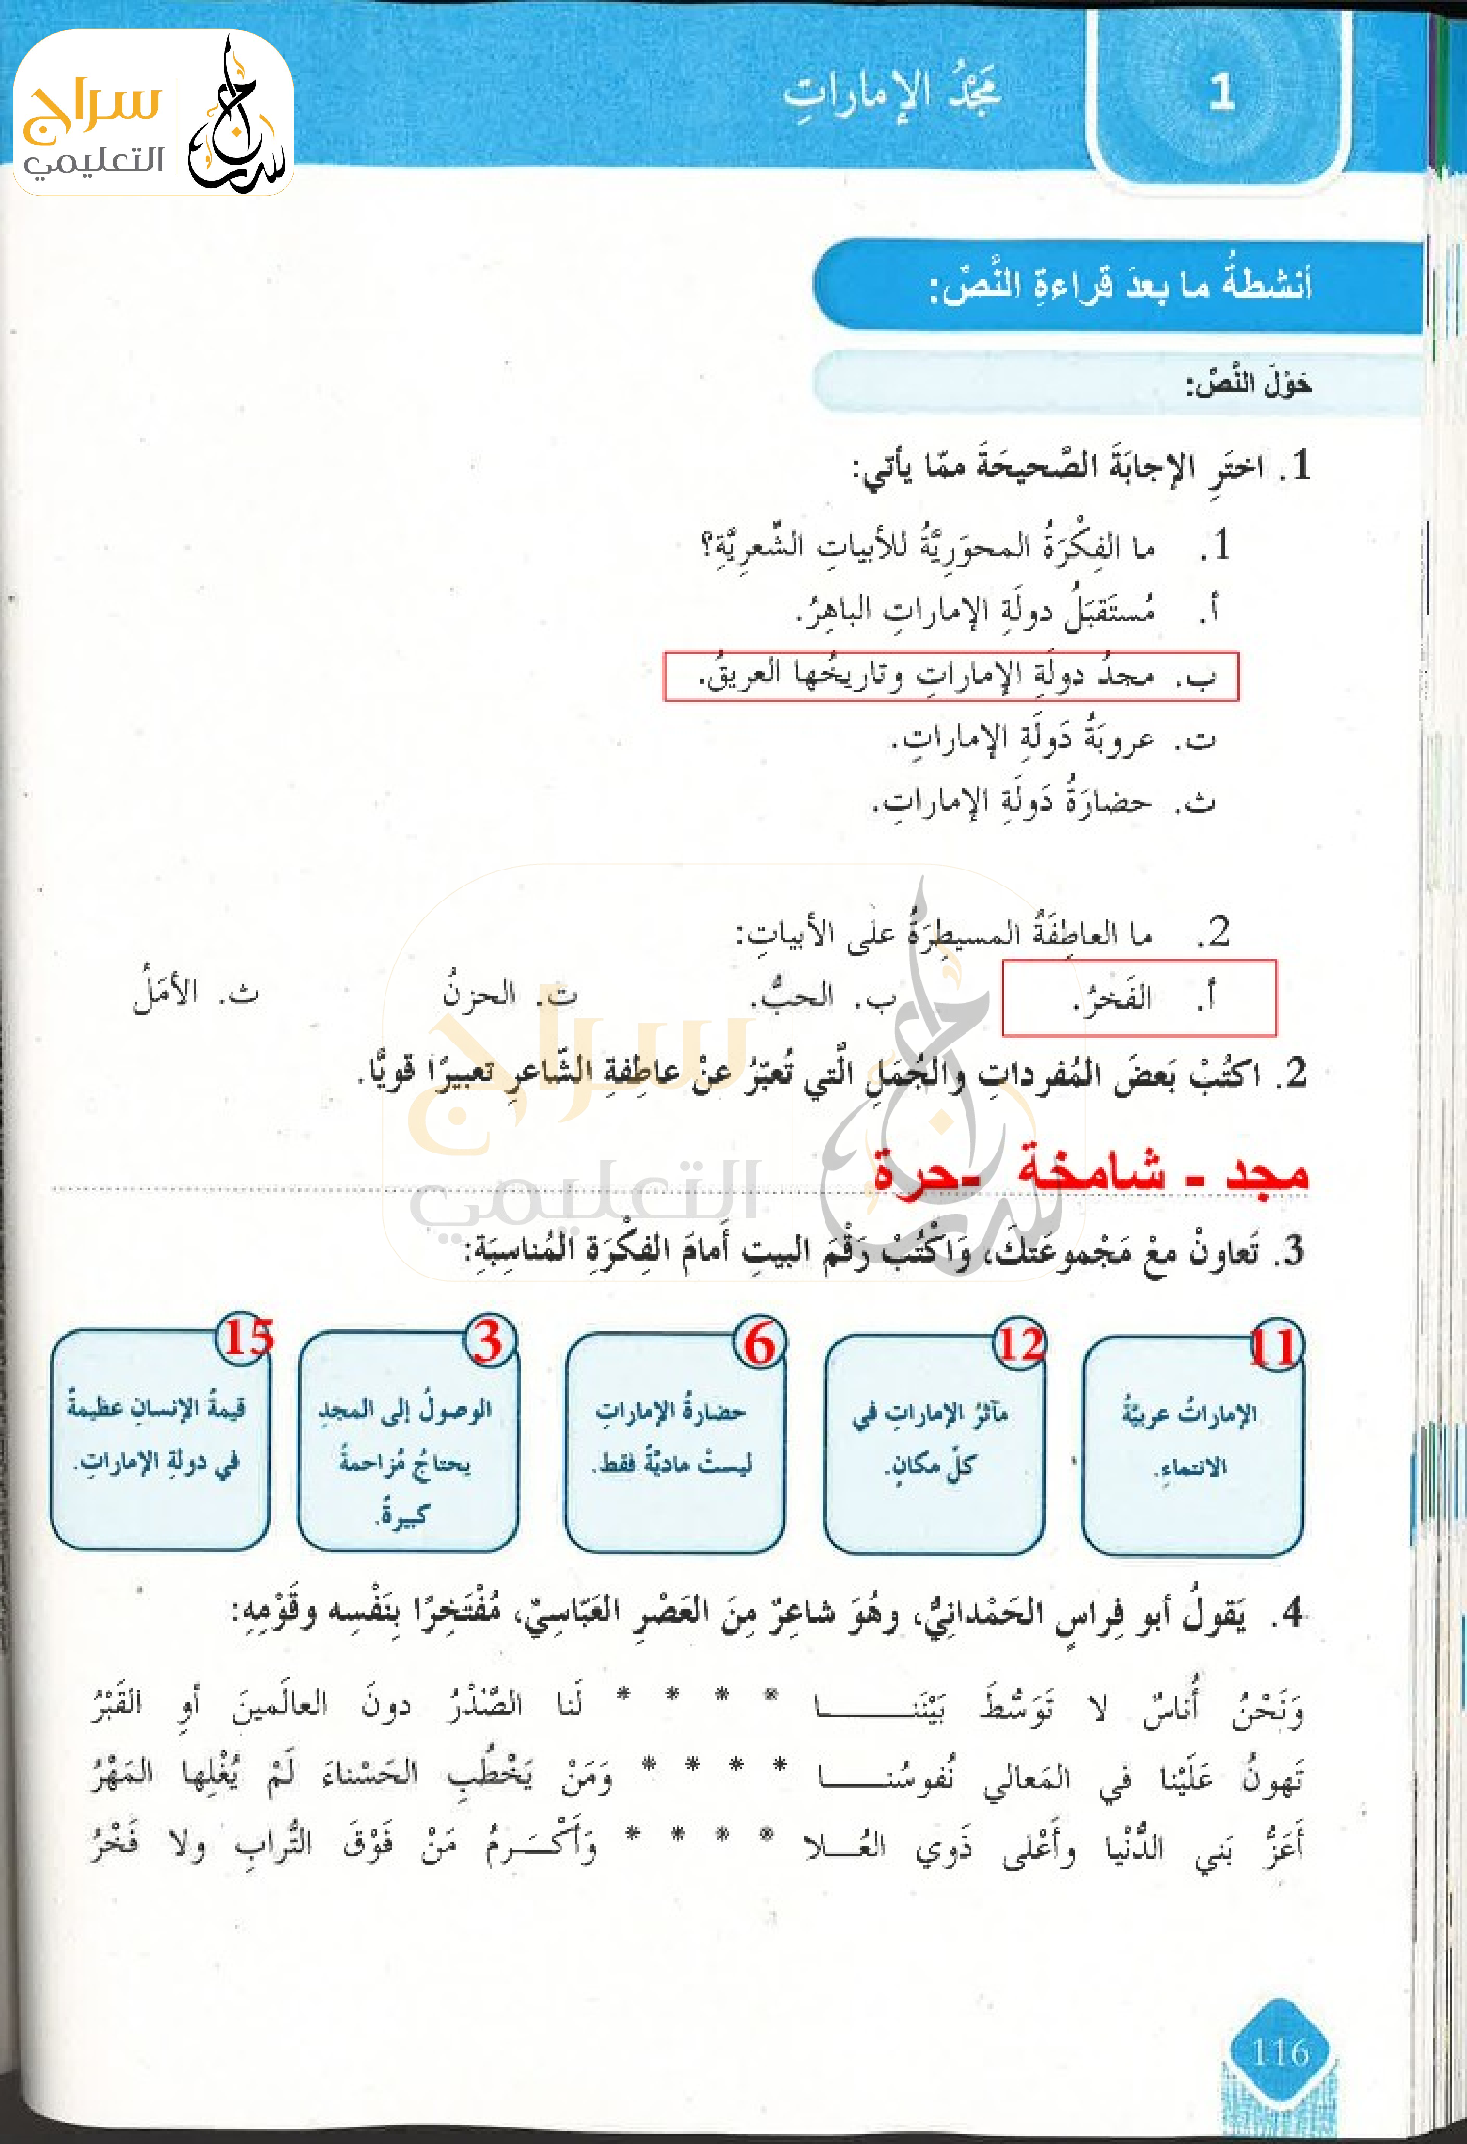 سراج
التعليمي
مَجْدُ الإماراتِ
1
أنشطةُ ما بعدَ قراءةِ النَّصِّ:
حَوْلَ النَّصِّ:
1. اختَرِ الإجابَةَ الصَّحيحَةَ ممّا يأتي:
1. ما الفِكْرَةُ المحوَرِيَّةُ للأبياتِ الشّعرِيَّةِ؟
أ. مُستَقبَلُ دولَةِ الإماراتِ الباهِرُ.
ب. مجدُ دولَةِ الإماراتِ وتاريخُها العريقُ.
ت. عروبَةُ دَولَةِ الإماراتِ.
ث. حضارَةُ دَولَةِ الإماراتِ.
2. ما العاطِفَةُ المسيطِرَةُ على الأبياتِ:
أ. الفَخرُ. ب. الحبُّ. ت. الحزنُ ث. الأمَلُ
2. اكتُبْ بَعضَ المُفرداتِ والجُمَلِ الَّتي تُعبّرُ عنْ عاطِفةِ الشّاعرِ تعبيرًا قويًّا.
مجد - شامخة -حرة
سراج
التعليمي
3. تَعاونْ معْ مَجْموعَتكَ، وَاكْتُبْ رَقْمَ البيتِ أَمامَ الفِكْرَةِ المُناسِبَةِ:
11 12 6 3 15
الإماراتُ عربيَّةُ
الانتماءِ.
مآثرُ الإماراتِ في
كلّ مكانٍ.
حضارةُ الإماراتِ
ليستْ ماديَّةً فقط.
الوصولُ إلى المجدِ
يحتاجُ مُزاحمةً
كبيرةً.
قيمةُ الإنسانِ عظيمةٌ
في دولةِ الإماراتِ.
4. يَقولُ أبو فِراسٍ الحَمْدانِيُّ، وهُوَ شاعِرٌ مِنَ العَصْرِ العَبّاسِيِّ، مُفْتَخِرًا بِنَفْسِه وقَوْمِهِ:
وَنَحْنُ أُناسٌ لا تَوَسُّطَ بَيْنَنـــــــا * * * * لَنا الصَّدْرُ دونَ العالَمينَ أوِ القَبْرُ
تَهونُ عَلَيْنا في المَعالي نُفوسُنـــــا * * * * وَمَنْ يَخْطُبِ الحَسْناءَ لَمْ يُغْلِها المَهْرُ
أَعَزُّ بَني الدُّنْيا وأَعْلى ذَوي العُـــلا * * * * وَأَكْـــرَمُ مَنْ فَوْقَ التُّرابِ ولا فَخْرُ
116